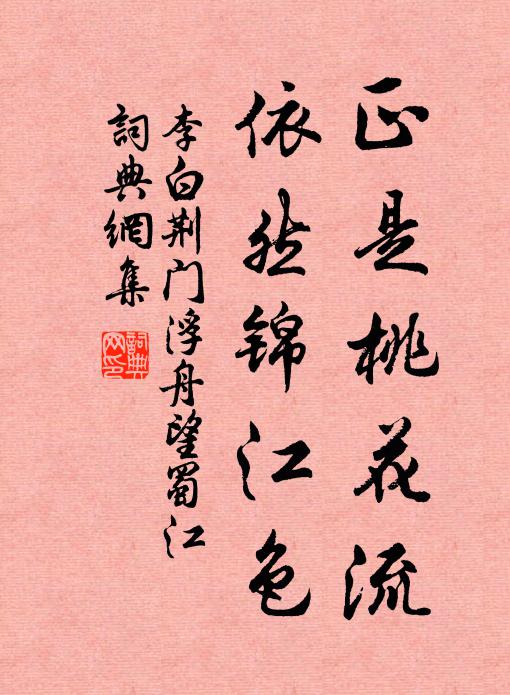 正是桃花流
依然锦江色
李白荆门浮舟望蜀江
詞典網集
詞典
网印